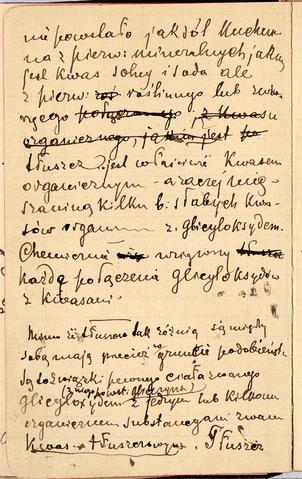 nie powstało jak sól kuchen
na z pierw: mineralnych jakiemi
jest kwas solny i soda ale
z pierw: roślinnego lub zwie
rzęcego połączonego, z kwasu
organicznego, jakim jest
tłuszcz jest właściwie kwasem
organicznym – a raczej mię
szaniną kilku b. słabych kwa
sów organ z glicyloksydem.
Chemicznie wzięty
każde połączenie glicyloksydów
z kwasami.
Mimo iż tłuszcze tak różnią się między
sobą mają przecież w gruncie podobieńst
są to związki pewnego ciała zwanego
glicyloksydem z jednym lub kilkoma
organicznemi substancyami zwan
kwas. tłuszczowym. Tłuszcz